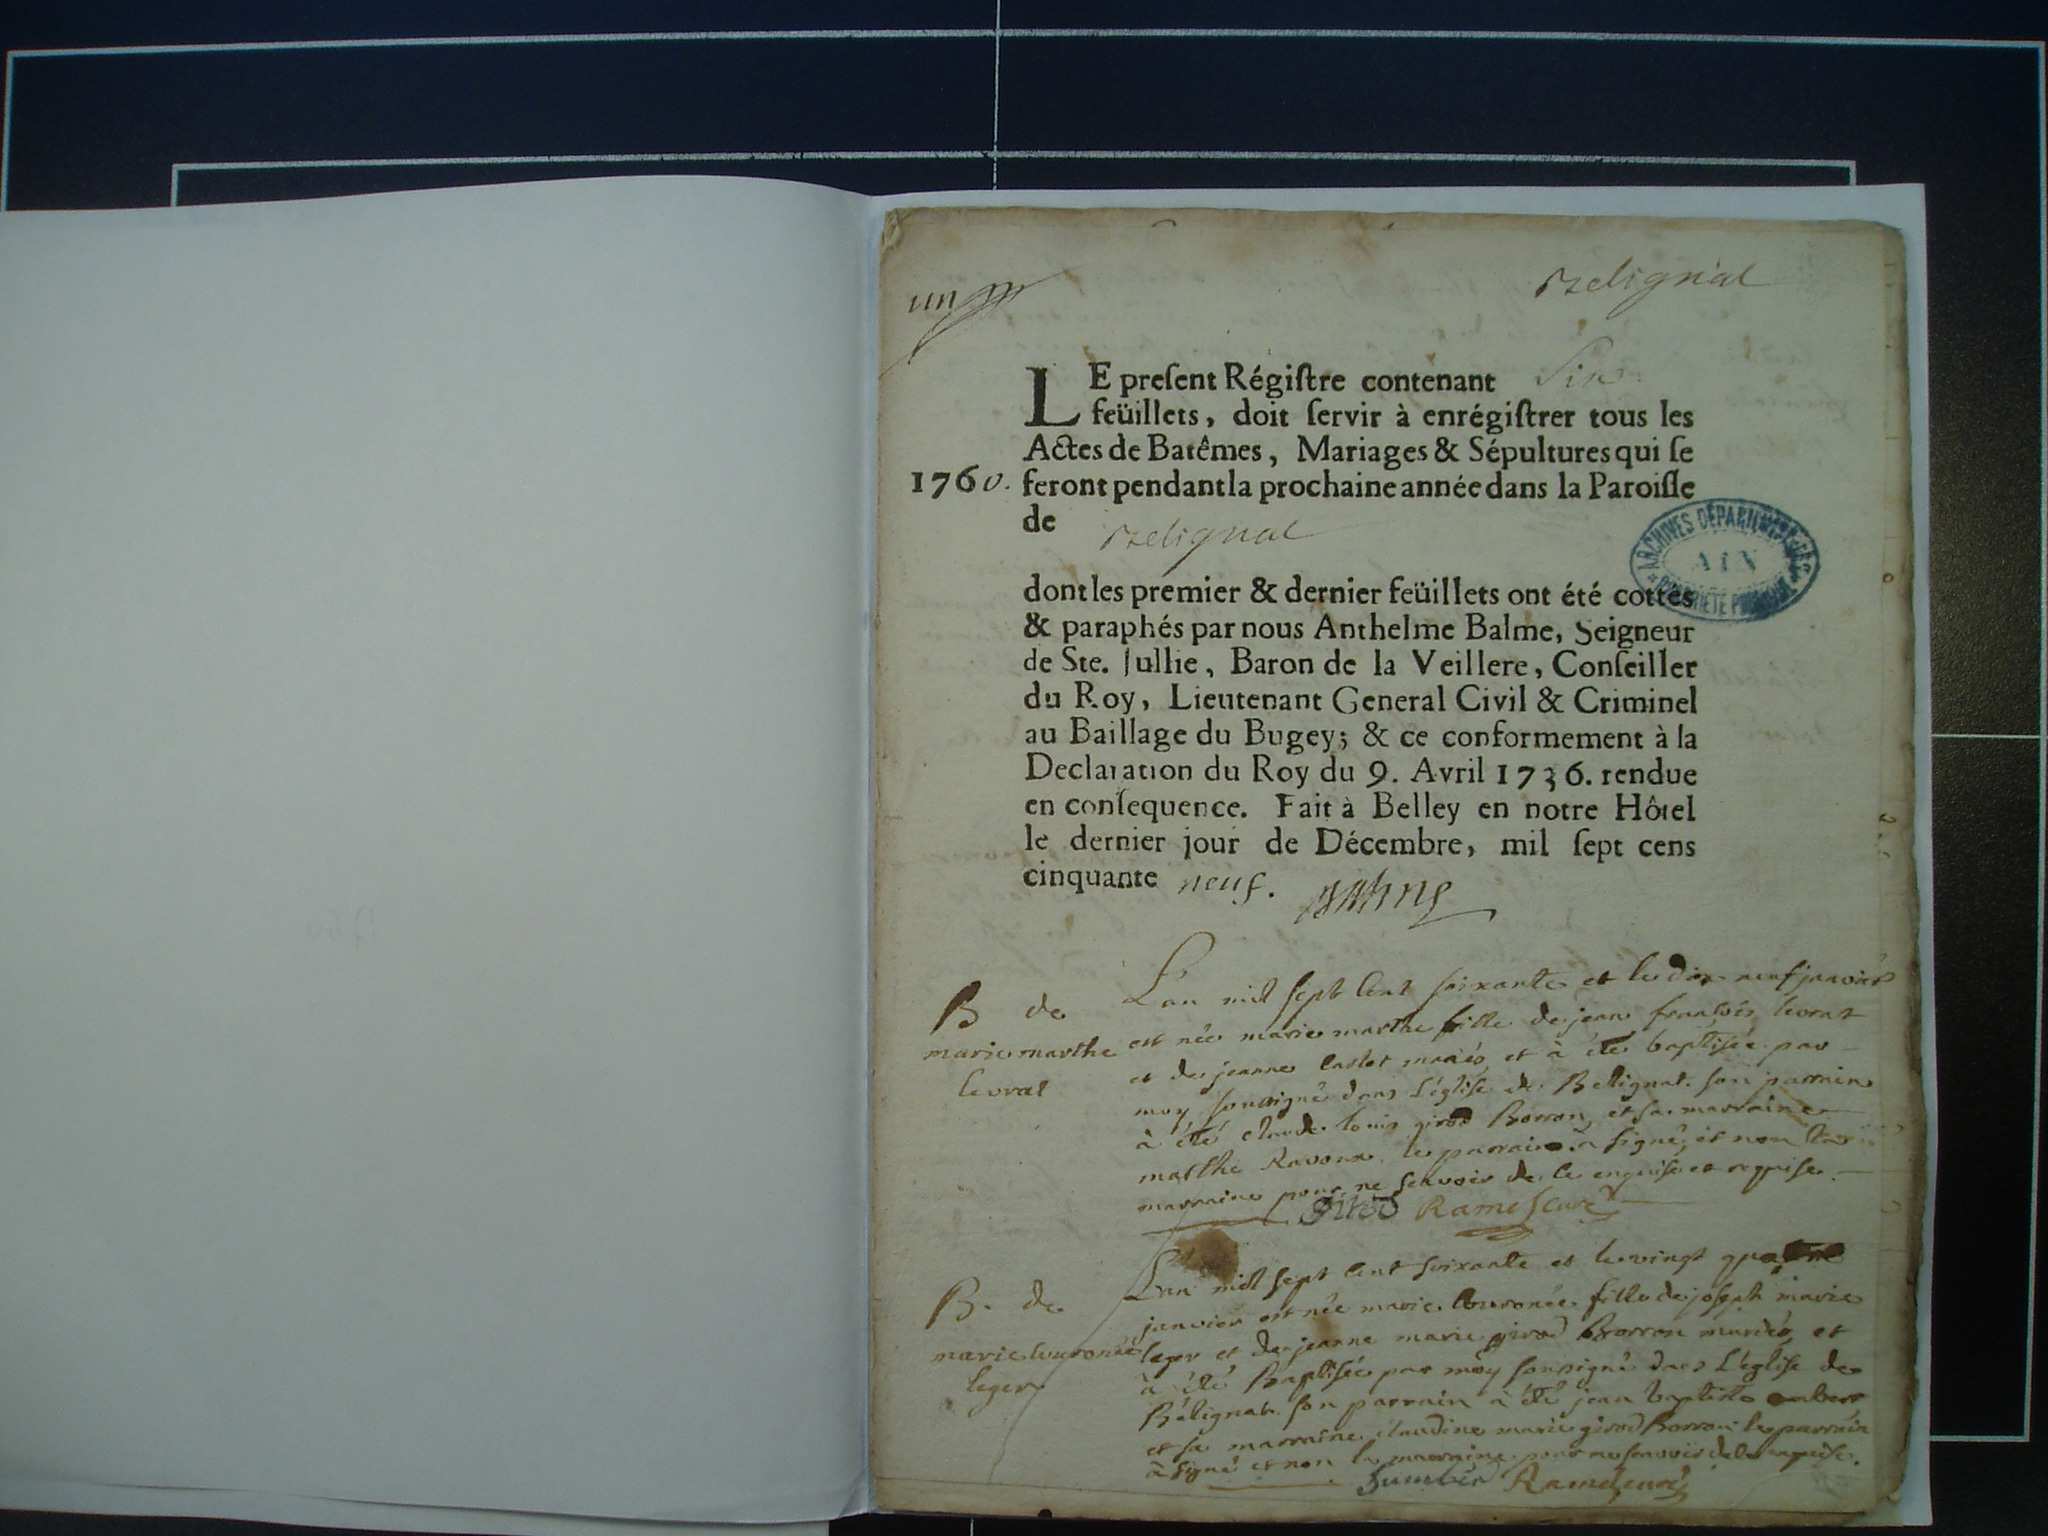 un
Belignat
LE preſent Régiſtre contenant Six
feüillets, doit ſervir à enrégiſtrer tous les
Actes de Batêmes, Mariages & Sépultures qui ſe
1760. feront pendant la prochaine année dans la Paroiſſe
de Belignat
ARCHIVES DÉPARTEMENTALES
AIN
PROPRIÉTÉ PUBLIQUE
dont les premier & dernier feüillets ont été cottés
& paraphés par nous Anthelme Balme, Seigneur
de Ste. Jullie, Baron de la Veillere, Conſeiller
du Roy, Lieutenant General Civil & Criminel
au Baillage du Bugey; & ce conformement à la
Declaration du Roy du 9. Avril 1736. rendue
en conſequence. Fait à Belley en notre Hôtel
le dernier jour de Décembre, mil ſept cens
cinquante neuf.
B de
marie marthe
levrat
L'an mil sept cent soixante et le dix neuf janvier
est née marie marthe fille de jean françois levrat
et de jeanne caslet mariés et à été baptisée par
moy soussigné dans l'église de Belignat. son parrain
à été claude louis girod Borron, et sa marraine
marthe Ravoux. le parrain a signé, et non la
marraine pour ne sçavoir de ce enquise et requise.
Girod Rame curé
B. de
marie couronée
leger
L'an mil sept cent soixante et le vingt quatre
janvier est née marie couronée fille de joseph marie
leger et de jeanne marie girod Borron mariés, et
à été Baptisée par moy soussigné dans l'église de
Bélignat. son parrain à été jean baptiste
et sa marraine claudine marie girod Borron. le parrain
à signé et non la marraine pour ne sçavoir de ce requise.
Rame curé